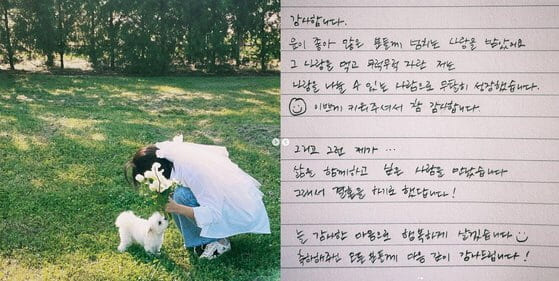 감사합니다.
운이 좋아 많은 분들께 넘치는 사랑을 받았어요
그 사랑을 먹고 무럭무럭 자란 저는
사랑을 나눌 수 있는 사람으로 무탈히 성장했습니다.
이쁘게 키워주셔서 참 감사합니다.
그리고 그런 제가...
삶을 함께하고 싶은 사람을 만났습니다
그래서 결혼을 하기로 했답니다!
늘 감사한 마음으로 행복하게 살겠습니다
축하해주신 모든 분들께 마음 깊이 감사드립니다!